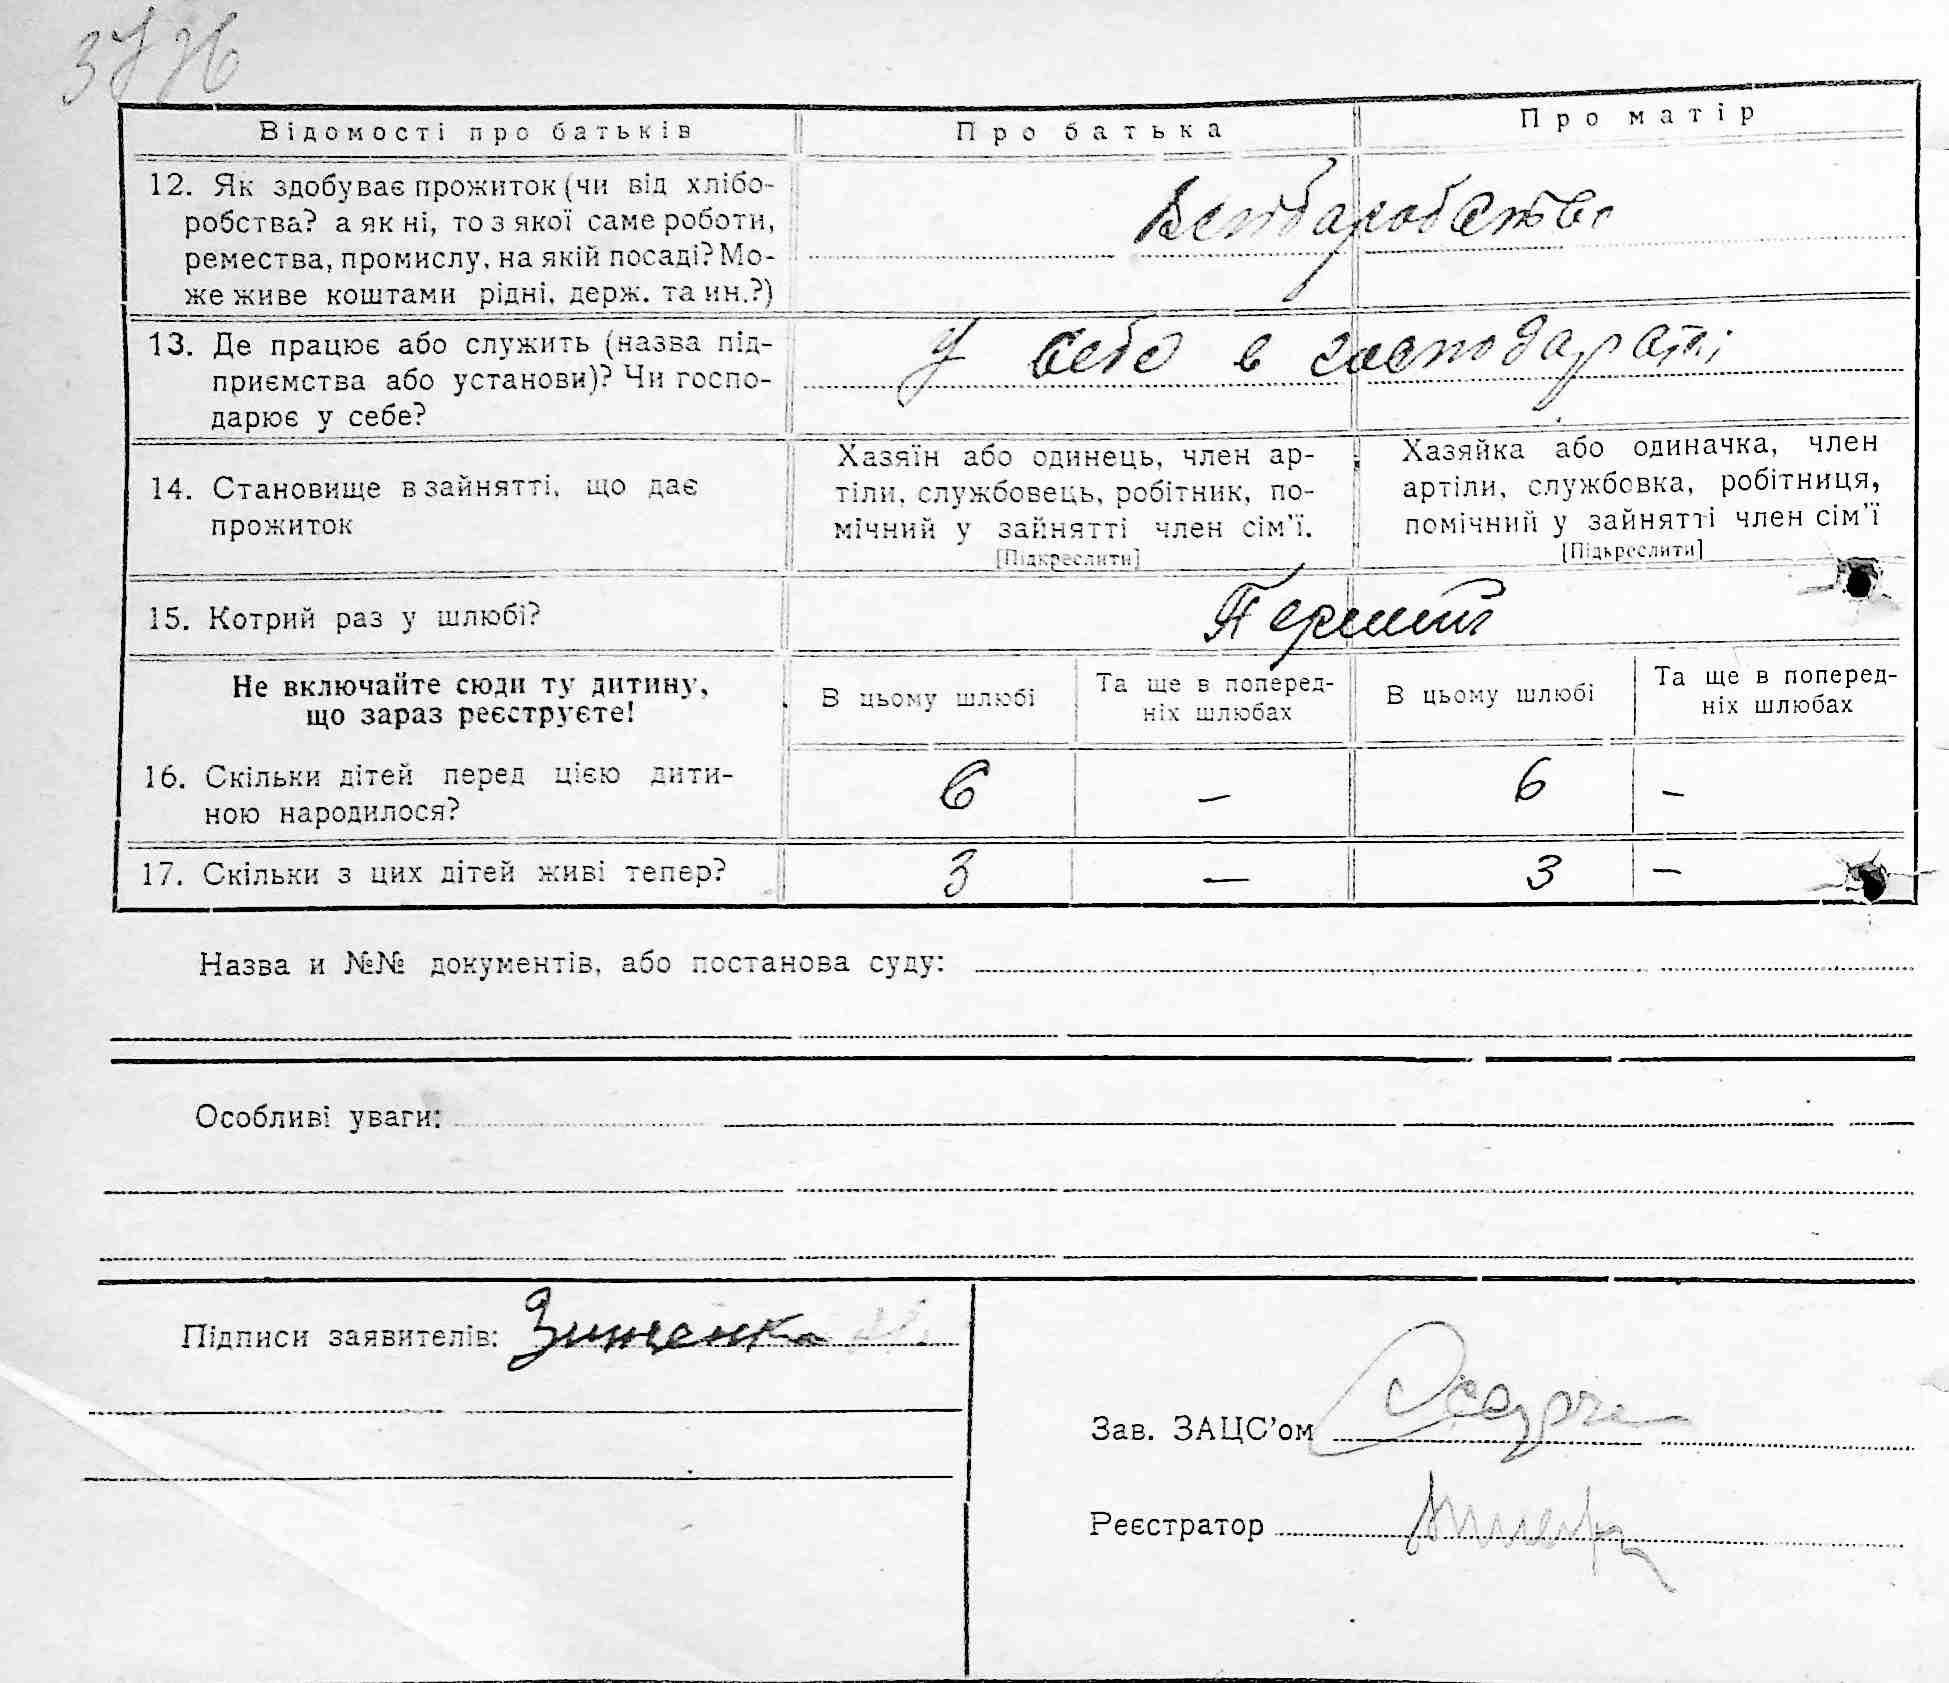 Відомості про батьків
Про батька
Про матір
12. Як здобуває прожиток (чи від хлібо-
робства? а як ні, то з якої саме роботи,
ремества, промислу, на якій посаді? Мо-
же живе коштами рідні, держ. та ин.?)
13. Де працює або служить (назва під-
приємства або установи)? Чи госпо-
дарює у себе?
У себе в господарстві
14. Становище в зайнятті, що дає
прожиток
Хазяїн або одинець, член ар-
тіли, службовець, робітник, по-
мічний у зайнятті член сім'ї.
[Підкреслити]
Хазяйка або одиначка, член
артіли, службовка, робітниця,
помічний у зайнятті член сім'ї
[Підкреслити]
15. Котрий раз у шлюбі?
Перший
Не включайте сюди ту дитину,
що зараз реєструєте!
В цьому шлюбі
Та ще в поперед-
ніх шлюбах
В цьому шлюбі
Та ще в поперед-
ніх шлюбах
16. Скільки дітей перед цією дити-
ною народилося?
6 – 6 –
17. Скільки з цих дітей живі тепер?
3 – 3 –
Назва и №№ документів, або постанова суду:
Особливі уваги:
Підписи заявителів:
Зав. ЗАЦС'ом
Реєстратор